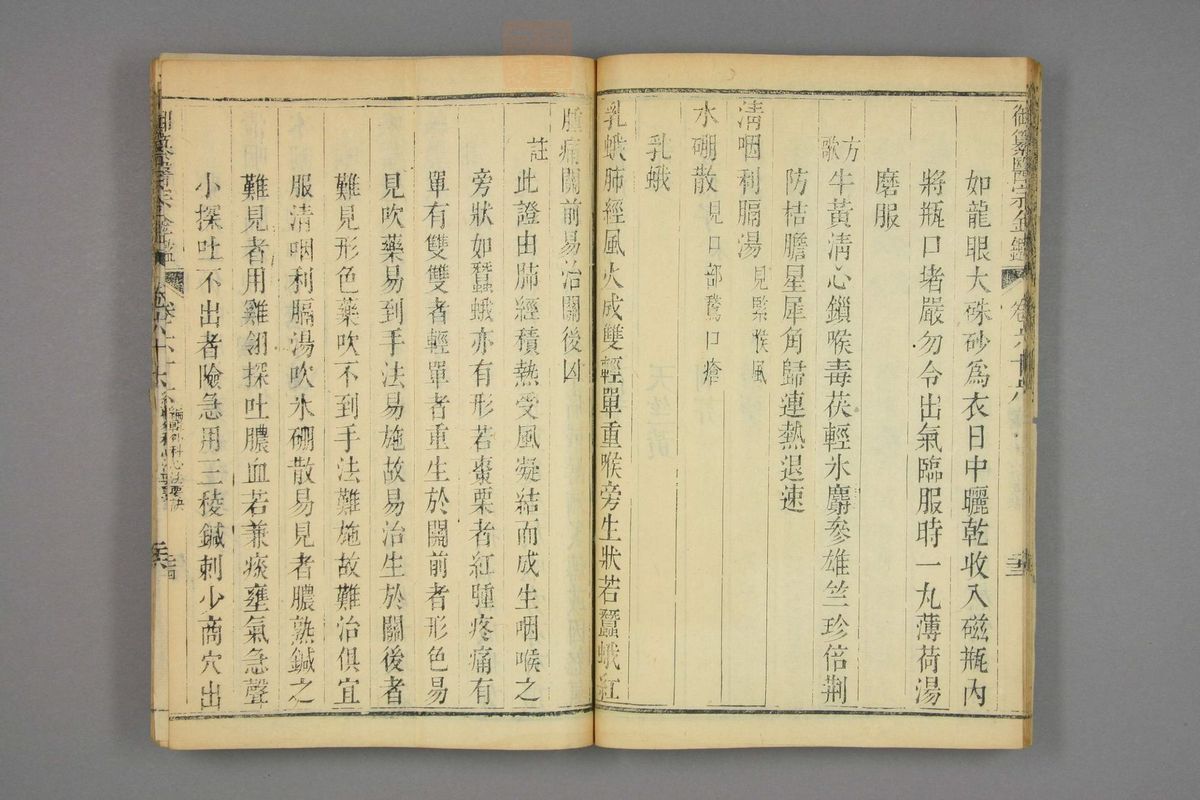 御纂醫宗金鑑 卷六十六
如龍眼大硃砂爲衣日中曬乾收入磁瓶內
將瓶口堵嚴勿令出氣臨服時一丸薄荷湯
磨服
方歌
牛黃清心鎖喉毒茯輕氷麝參雄竺珍倍荆
防桔膽星犀角歸連熱退速
清咽利膈湯 見緊喉風
水硼散 見口部鵞口瘡
乳蛾
乳蛾肺經風火成雙輕單重喉旁生狀若蠶蛾紅
腫痛關前易治關後凶
註
此證由肺經積熱受風凝結而成生咽喉之
旁狀如蠶蛾亦有形若棗栗者紅腫疼痛有
單有雙雙者輕單者重生於關前者形色易
見吹藥易到手法易施故易治生於關後者
難見形色藥吹不到手法難施故難治俱宜
服清咽利膈湯吹氷硼散易見者膿熟鍼之
難見者用雞翎探吐膿血若兼痰壅氣急聲
小探吐不出者險急用三稜鍼刺少商穴出
御纂醫宗金鑑